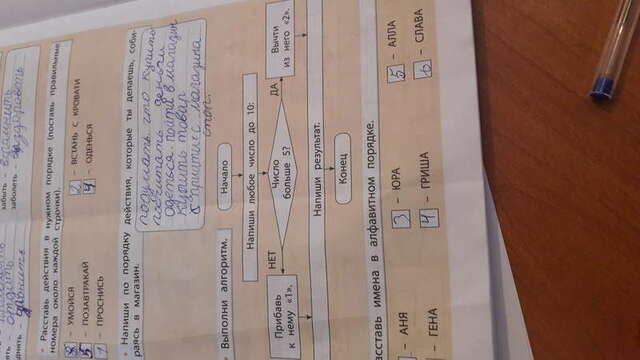 забыть - вспомнить
заболеть - выздороветь
• Расставь действия в нужном порядке (поставь правильные
номера около каждой строчки).
- УМОЙСЯ
2 - ВСТАНЬ С КРОВАТИ
5 - ПОЗАВТРАКАЙ
4 - ОДЕНЬСЯ
1 - ПРОСНИСЬ
• Напиши по порядку действия, которые ты делаешь, соби-
раясь в магазин.
подумать что купить
посчитать деньги
одеться пойти в магазин
купить товар
магазина
• Выполни алгоритм.
Начало
Напиши любое число до 10:
Число
больше 5?
НЕТ
ДА
Прибавь
к нему «1».
Вычти
из него «2».
Напиши результат.
Конец
асставь имена в алфавитном порядке.
- АНЯ
3 - ЮРА
5 - АЛЛА
- ГЕНА
4 - ГРИША
6 - СЛАВА